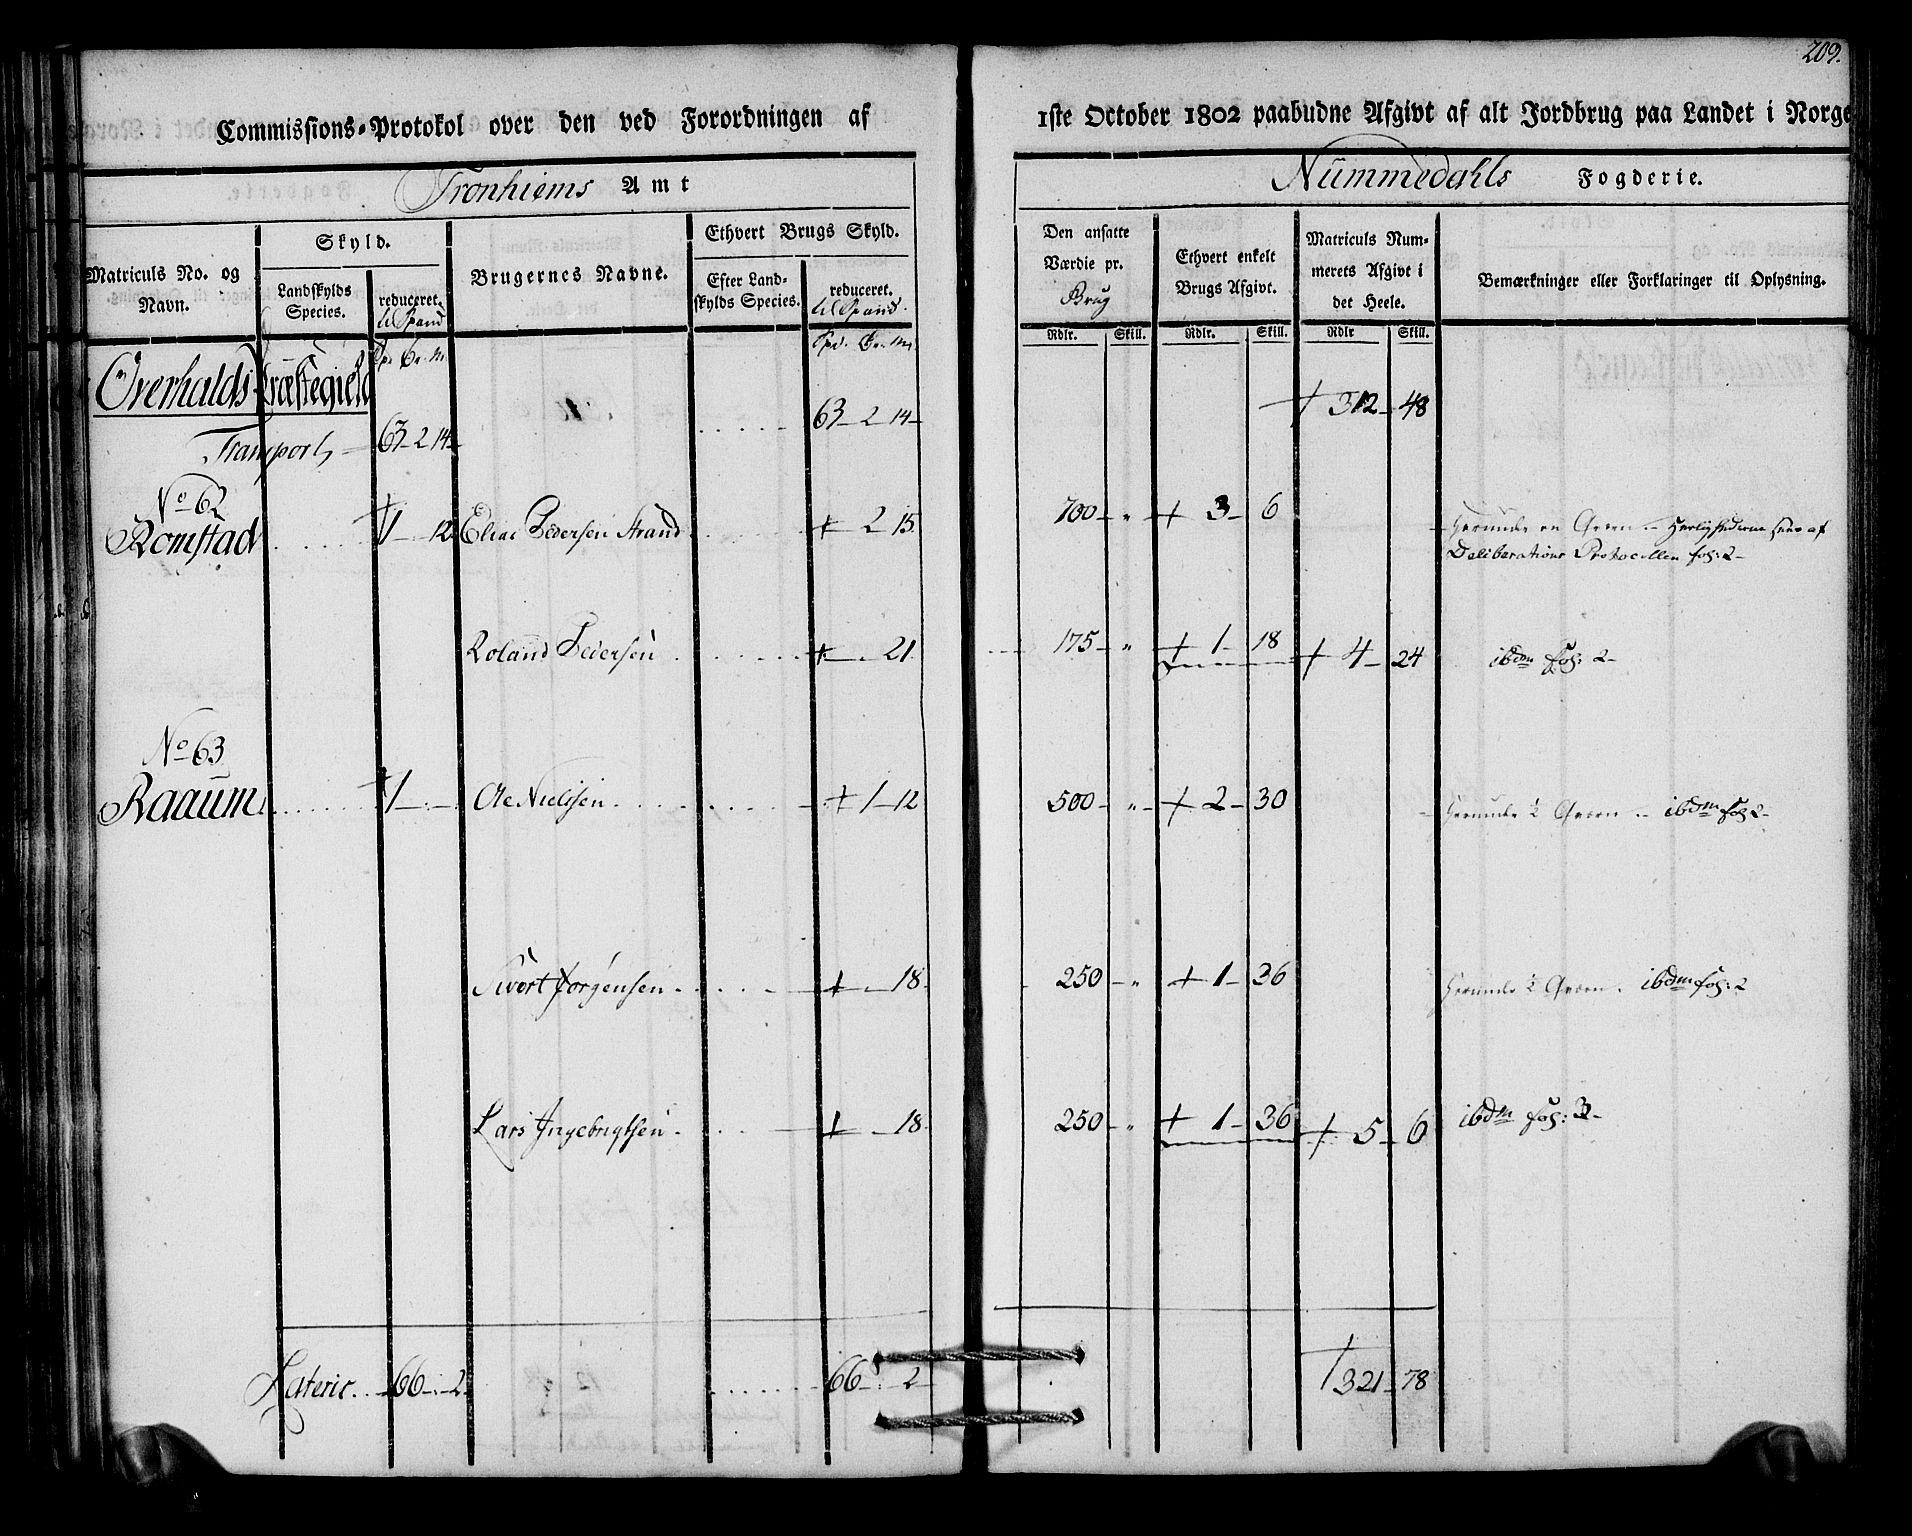 209.
Commissions-Protokol over den ved Forordningen af 1ste October 1802 paabudne Afgivt af alt Jordbrug paa Landet i Norge
Tronhiems Amt
Nummedahls Fogderie.
Matriculs No. og Navn.
Skyld.
Landskylds Species.
reduceret til Spand
Brugernes Navne.
Ethvert Brugs Skyld.
Efter Landskylds Species.
reduceret til Spand.
Den ansatte Værdie pr. Brug
Ethvert enkelt Brugs Afgivt.
Matriculs Nummerets Afgivt i det Heele.
Bemærkninger eller Forklaringer til Oplysning.
Rdlr. Skill. Rdlr. Skill. Rdlr Skill.
Overhalds Præstegield
Transport 63 - 2 14 - 63 - 2 14 - + 312 - 48
No 62
Romstad 1 - 12 Elias Pedersen Strand + 2 15. 700 - " + 3 - 6 Herunder en Qværn - Herlighederne sees af
Deliberations Protocollen fol: 2 -
Roland Pedersen + - 21. 175 - " + 1 - 18 + 4 - 24 ibdm fol: 2 -
No 63
Raaum 1 - Ole Nielssen + 1 - 12 500 - " + 2 - 30 Herunder Qværn - ibdm fol 2 -
Sivert Jørgensen + - 18. 250 - " + 1 - 36 Herunder Qværn. ibdm fol: 2
Lars Ingebrigtsen + - 18. 250 - " + 1 - 36 + 5 - 6 ibdm fol: 3 -
Lateris 66 - 2 66 - 2 321 - 78